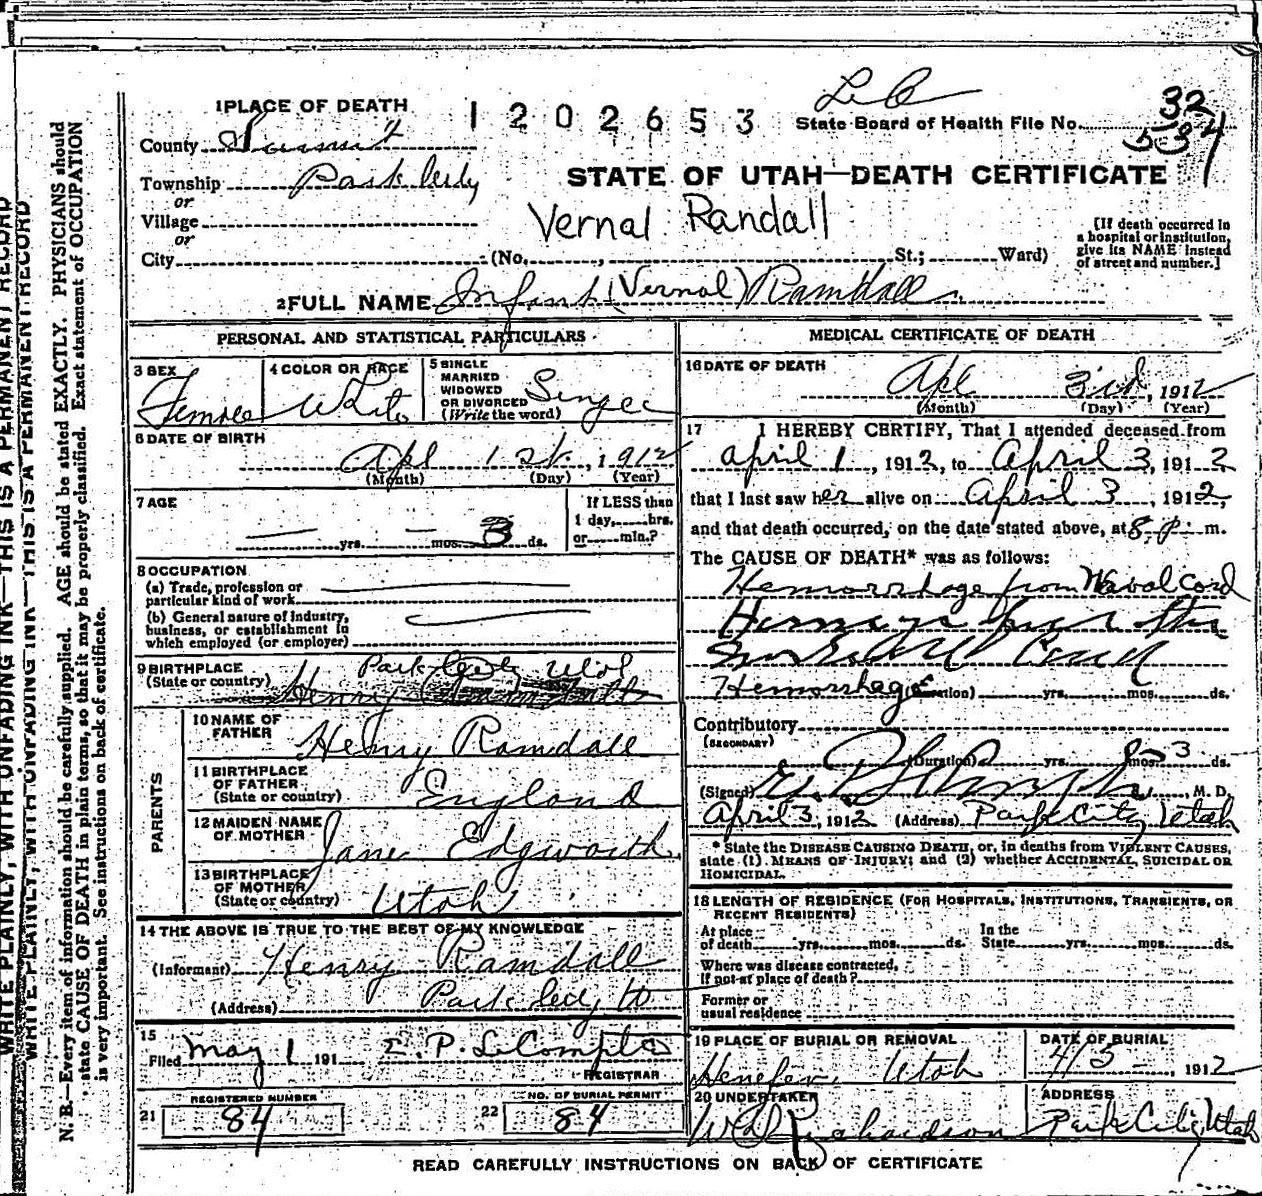 1 PLACE OF DEATH
1202653
State Board of Health File No. 32
534
County Summit
Township Park City
or
Village
or
City (No. , St.; Ward)
STATE OF UTAH—DEATH CERTIFICATE
Vernal Randall
[If death occurred in a hospital or institution, give its NAME instead of street and number.]
2 FULL NAME Infant (Vernal) Ramdall
PERSONAL AND STATISTICAL PARTICULARS
3 SEX
Female
4 COLOR OR RACE
White
5 SINGLE
MARRIED
WIDOWED
OR DIVORCED
(Write the word)
Single
6 DATE OF BIRTH
Apl 1st, 1912
(Month) (Day) (Year)
7 AGE
yrs. mos. 3 ds.
If LESS than
1 day, hrs.
or min.?
8 OCCUPATION
(a) Trade, profession or
particular kind of work
(b) General nature of industry,
business, or establishment in
which employed (or employer)
9 BIRTHPLACE
(State or country)
Park City Utah
Henry
PARENTS
10 NAME OF
FATHER
Henry Ramdall
11 BIRTHPLACE
OF FATHER
(State or country)
England
12 MAIDEN NAME
OF MOTHER
Jane Edgworth
13 BIRTHPLACE
OF MOTHER
(State or country)
Utah
14 THE ABOVE IS TRUE TO THE BEST OF MY KNOWLEDGE
(Informant) Henry Ramdall
(Address) Park City
15
Filed May 1 191 E. P. LeCompte
REGISTRAR
REGISTERED NUMBER
21 84
NO. OF BURIAL PERMIT
22 84
MEDICAL CERTIFICATE OF DEATH
16 DATE OF DEATH
Apl 3rd, 1912
(Month) (Day) (Year)
17 I HEREBY CERTIFY, That I attended deceased from
April 1, 1912, to April 3, 1912
that I last saw her alive on April 3, 1912,
and that death occurred, on the date stated above, at 8 P. m.
The CAUSE OF DEATH* was as follows:
Hemorrhage from Naval Cord
Hemorrhage
(Duration) yrs. mos. ds.
Contributory
(SECONDARY)
(Duration) yrs. mos. 3 ds.
(Signed) , M. D.
April 3, 1912 (Address) Park City Utah
* State the DISEASE CAUSING DEATH, or, in deaths from VIOLENT CAUSES,
state (1) MEANS OF INJURY; and (2) whether ACCIDENTAL, SUICIDAL OR
HOMICIDAL.
18 LENGTH OF RESIDENCE (FOR HOSPITALS, INSTITUTIONS, TRANSIENTS, OR
RECENT RESIDENTS)
At place
of death yrs. mos. ds.
In the
State yrs. mos. ds.
Where was disease contracted,
If not at place of death?
Former or
usual residence
19 PLACE OF BURIAL OR REMOVAL
Henefer, Utah
DATE OF BURIAL
4/5, 1912
20 UNDERTAKER
Richardson
ADDRESS
Park City, Utah
READ CAREFULLY INSTRUCTIONS ON BACK OF CERTIFICATE
WRITE PLAINLY, WITH UNFADING INK—THIS IS A PERMANENT RECORD
WRITE PLAINLY, WITH UNFADING INK—THIS IS A PERMANENT RECORD
N. B.—Every item of information should be carefully supplied. AGE should be stated EXACTLY. PHYSICIANS should
state CAUSE OF DEATH in plain terms, so that it may be properly classified. Exact statement of OCCUPATION
is very important. See instructions on back of certificate.